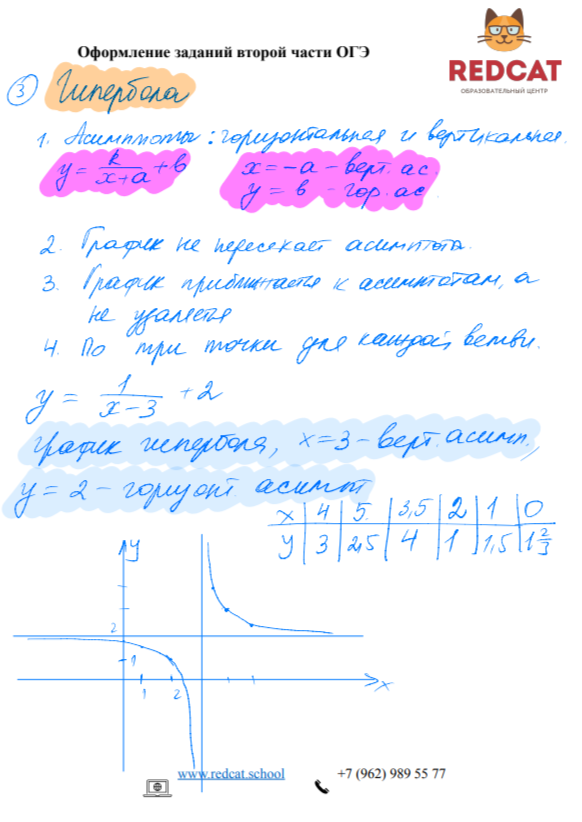 Оформление заданий второй части ОГЭ
REDCAT
ОБРАЗОВАТЕЛЬНЫЙ ЦЕНТР
3 Гипербола
1. Асимптоты: горизонтальная и вертикальная.
y = k/(x+a) + b
x = -a - верт. ас.
y = b - гор. ас.
2. График не пересекает асимптота.
3. График приближается к асимптотам, а
не удаляется
4. По три точки для каждой ветви.
y = 1/(x-3) + 2
График гипербола, x=3 - верт. асимп.,
y = 2 - горизонт асимпт
x | 4 | 5. | 3,5 | 2 | 1 | 0
y | 3 | 2,5 | 4 | 1 | 1,5 | 1 2/3
y
2
1
1 2 x
www.redcat.school +7 (962) 989 55 77